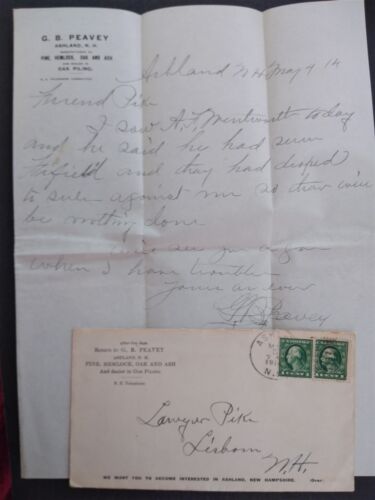 G. B. PEAVEY
ASHLAND, N. H.
PINE, HEMLOCK, OAK AND ASH
OAK PILING.
Ashland N H May 4 14
Friend Pike
I saw A. F. Wentworth today
and he said he had seen
and they had
to against me so
be nothing done
see you
when I have trouble
Yours as ever
G B Peavey
Return to G. B. PEAVEY
ASHLAND, N. H.
PINE, HEMLOCK, OAK AND ASH
And dealer in Oak
N. E. Telephone
Lawyer Pike
Lisbon
N.H.
WE WANT YOU TO BECOME INTERESTED IN ASHLAND, NEW HAMPSHIRE. (Over)